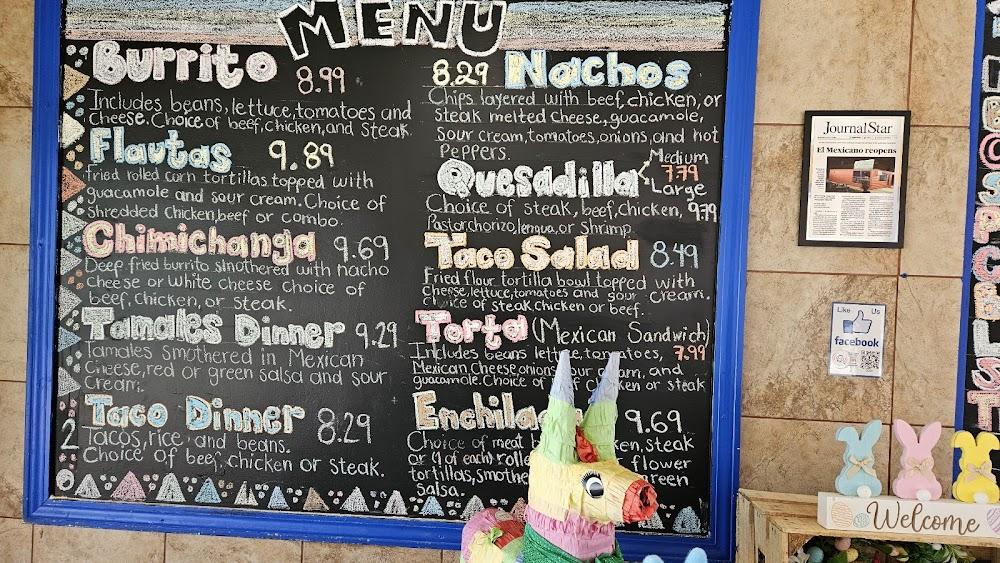 MENU
Burrito 8.99
Includes beans, lettuce, tomatoes and
cheese. Choice of beef, chicken, and steak.
Flautas 9.89
fried rolled corn tortillas topped with
guacamole and sour cream. Choice of
shredded chicken, beef or combo.
Chimichanga 9.69
Deep fried burrito smothered with nacho
cheese or white cheese choice of
beef, chicken, or steak.
Tamales Dinner 9.29
Tamales smothered in Mexican
cheese, red or green salsa and sour
cream.
Taco Dinner 8.29
Tacos, rice, and beans.
Choice of beef, chicken or steak.
8.29 Nachos
Chips layered with beef, chicken, or
steak melted cheese, guacamole,
sour cream, tomatoes, onions, and hot
peppers.
Quesadilla Medium
7.79
Large
Choice of steak, beef, chicken, 9.79
Pastor, chorizo, lengua, or shrimp.
Taco Salad 8.49
Fried flour tortilla bowl topped with
cheese, lettuce, tomatoes and sour cream.
choice of steak, chicken or beef.
Torta (Mexican Sandwich)
Includes beans lettuce, tomatoes, 7.99
Mexican Cheese, onions, sour cream, and
guacamole. Choice of chicken or steak
Enchilada 9.69
Choice of meat steak
or (1 of each) flower
tortillas, green
Salsa.
Journal Star
El Mexicano reopens
Like Us
facebook
Welcome